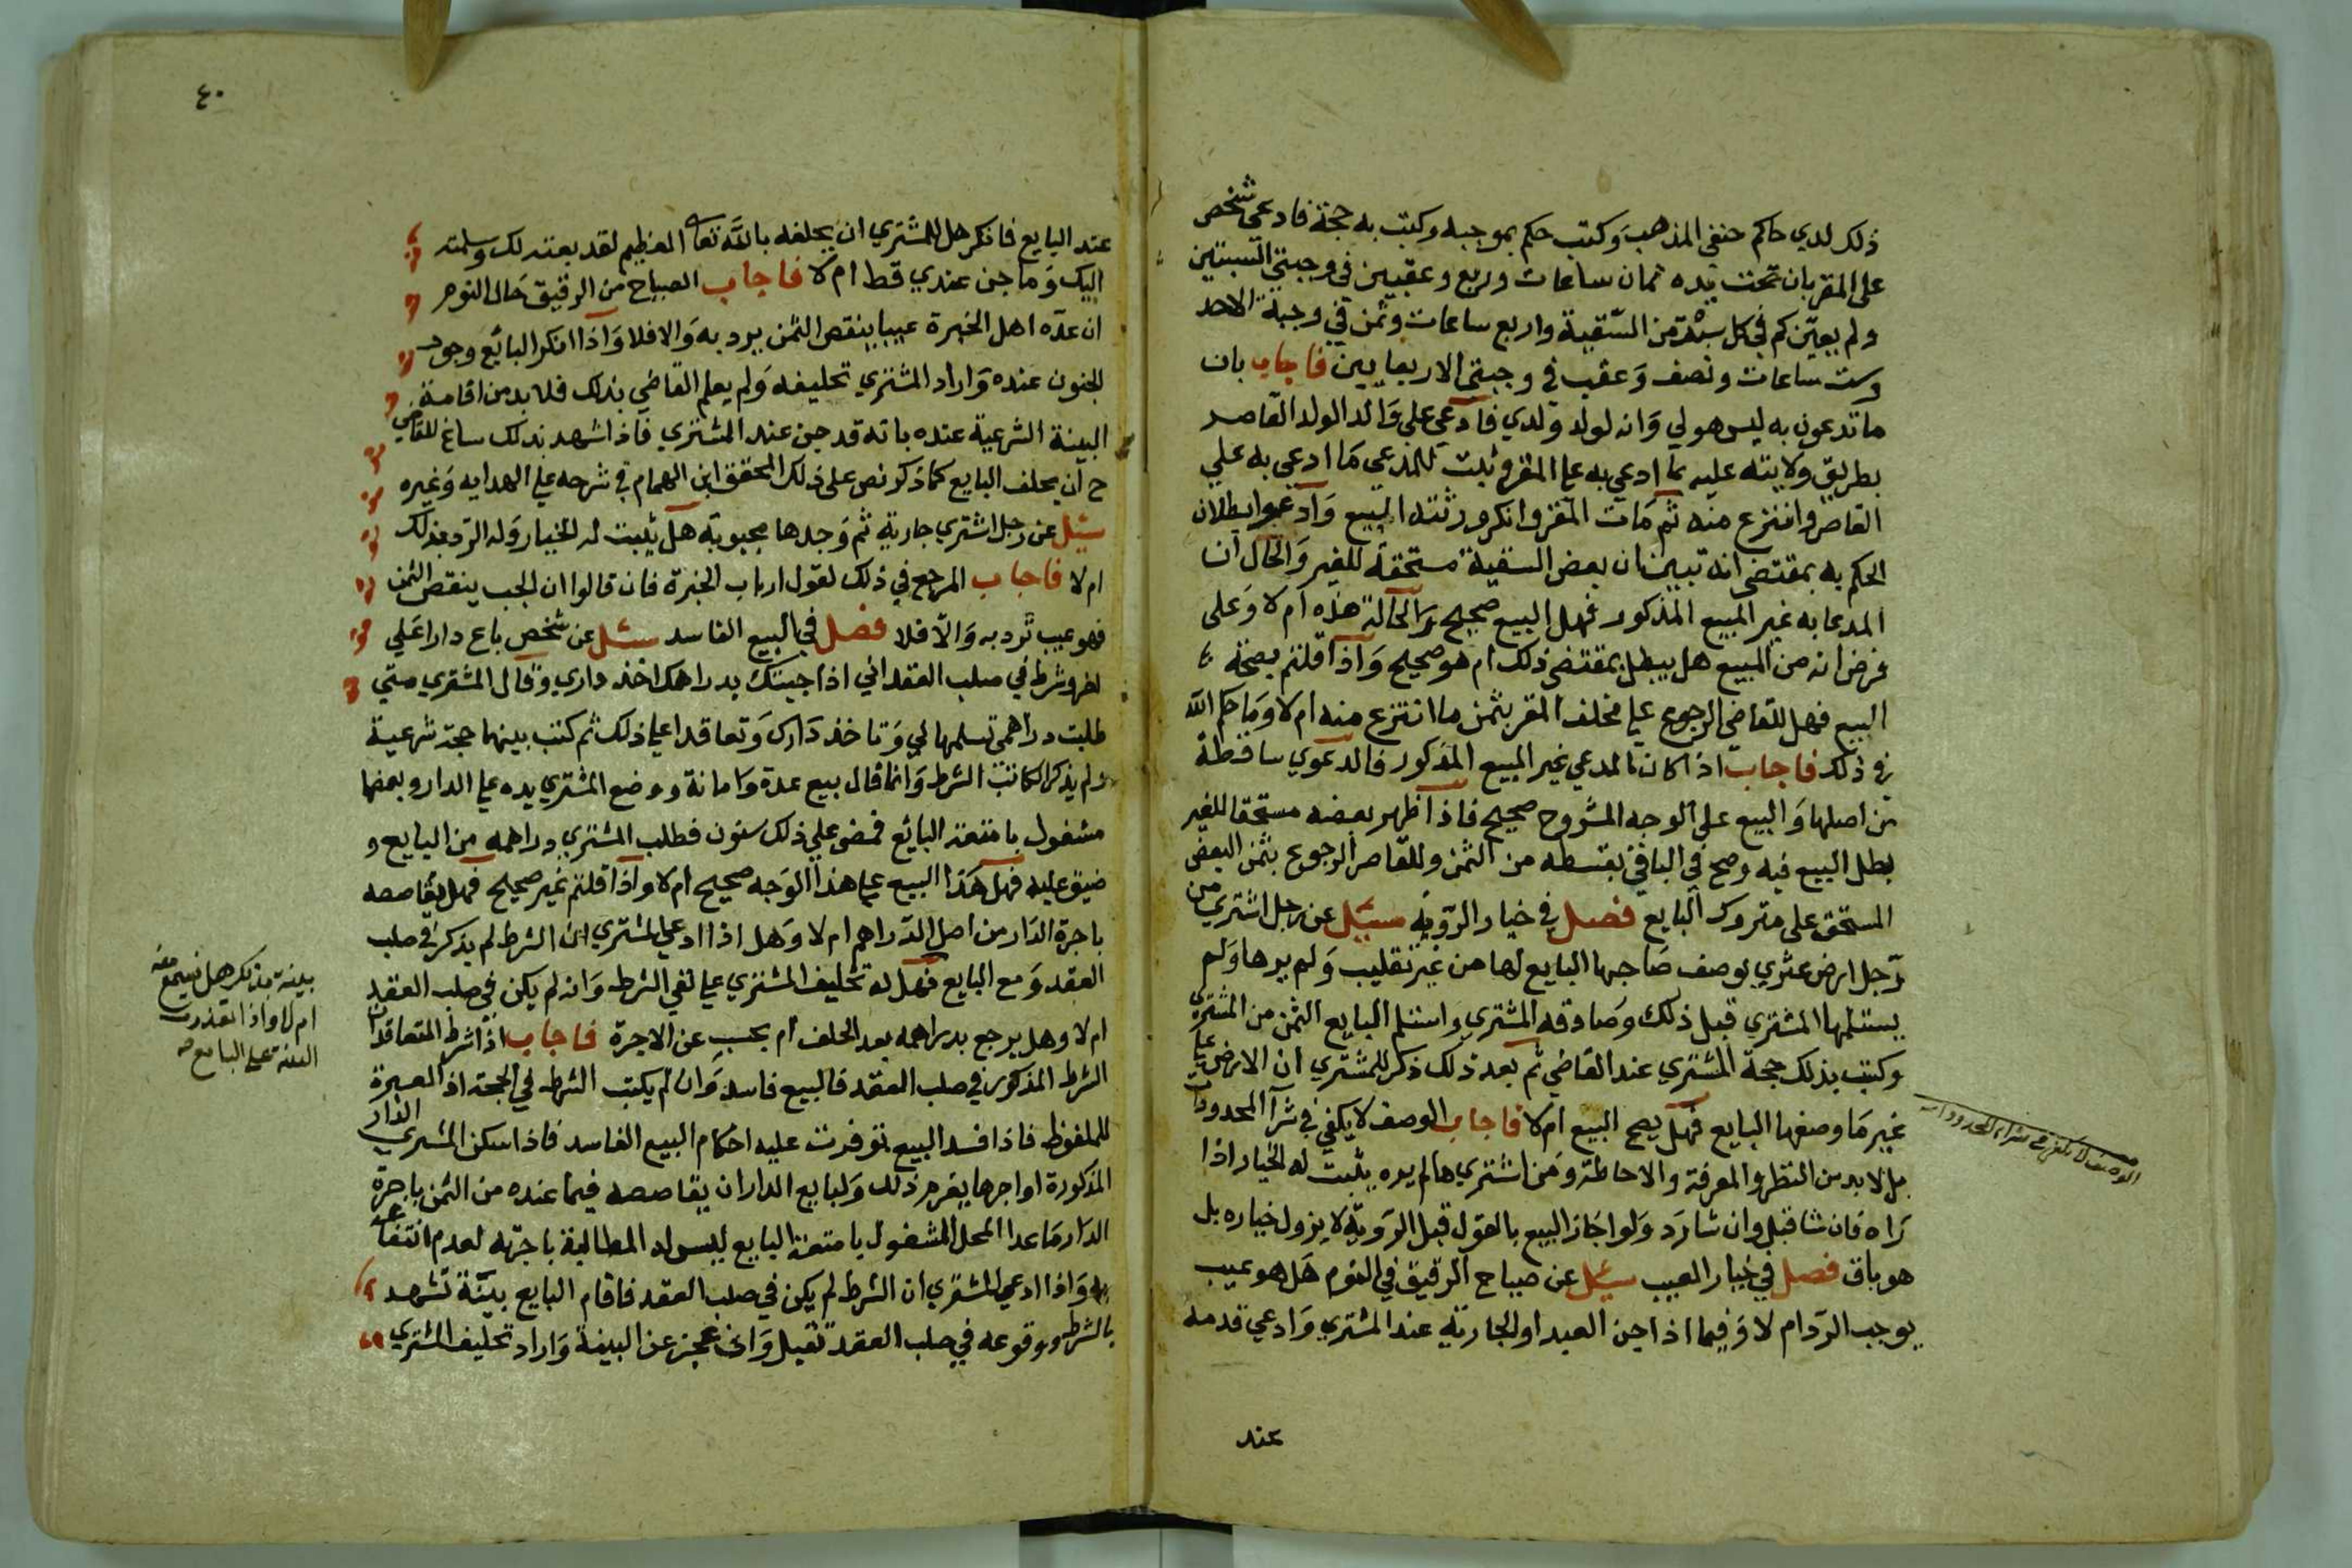 ذلك لدي حاكم حنفي المذهب وكتب حكم بموجبه وكتب به حجة فادعي شخص
على المقر بان تحت يده ثمان ساعات وربع وعقبين في وجبتي السبتين
ولم يعين كم في كل سبتة من السقية واربع ساعات وثمن في وجبة الاحد
وست ساعات ونصف وعقب في وجبتي الاربعايين فاجاب بان
ما تدعون به ليس هو لي وانه لولد ولدي فادعي على والد الولد القاصر
بطريق ولايته عليه بما ادعي به علي المقر وثبت للمدعي ما ادعي به علي
القاصر وانتزع منه ثم مات المقر وانكر ورثته البيع وادعوا بطلان
الحكم به بمقتضي انه تبين ان بعض السقية مستحقة للغير والحال ان
المدعا به غير المبيع المذكور فهل البيع صحيح والحالة هذه ام لا وعلى
فرض انه من المبيع هل يبطل بمقتضي ذلك ام هو صحيح واذا قلتم بصحة
البيع فهل للقاضي الرجوع علي مخلف المقر بثمن ما انتزع منه ام لا وما حكم الله
في ذلك فاجاب اذا كان المدعي غير المبيع المذكور فالدعوي ساقطة
من اصلها والبيع على الوجه المشروح صحيح فاذا ظهر بعضه مستحقا للغير
بطل البيع فيه وصح في الباقي بقسطه من الثمن وللقاصر الرجوع بثمن البعض
المستحق على متروك البايع فصل في خيار الروية سئيل عن رجل اشتري من
رجل ارض عثري بوصف صاحبها البايع لها من غير تقليب ولم يرها ولم
يستلمها المشتري قبل ذلك وصادقه المشتري واستلم البايع الثمن من المشتري
وكتب بذلك حجة المشتري عند القاضي ثم بعد ذلك ذكر للمشتري ان الارض علي
غير ما وصفها البايع فهل يصح البيع ام لا فاجاب الوصف لا يكفي في شرآ المحدودات
بل لا بد من النظر والمعرفة والاحاطة ومن اشتري ما لم يره يثبت له الخيار اذا
رآه فان شا قبل وان شا رد ولو اجاز البيع بالقول قبل الروية لا يزول خياره بل
هو باق فصل في خيار العيب سئيل عن صياح الرقيق في النوم هل هو عيب
يوجب الرد ام لا وفيما اذا جن العبد او الجارية عند المشتري وادعي قدمه
عند
الوصف لا يكفي في شراء المحدودات
٤٠
عند البايع فانكر هل للمشتري ان يحلفه بالله تعالى العظيم لقد بعته لك وسلمته
اليك وما جن عندي قط ام لا فاجاب الصياح من الرقيق حال النوم
ان عده اهل الخبرة عيبا ينقص الثمن يرد به والا فلا واذا انكر البائع وجود
الجنون عنده واراد المشتري تحليفه ولم يعلم القاضي بذلك فلا بد من اقامة
البينة الشرعية عنده بانه قد جن عند المشتري فاذا شهد بذلك ساغ للقاضي
ح ان يحلف البايع كما ذكر ونص على ذلك المحقق ابن الهمام في شرحه علي الهدايه وغيره
سئيل عن رجل اشتري جارية ثم وجدها مجبوبة هل يثبت له الخيار وله الرد بذلك
ام لا فاجاب المرجع في ذلك لقول ارباب الخبرة فان قالوا ان الجب ينقص الثمن
فهو عيب ترد به والا فلا فصل في البيع الفاسد سئل عن شخص باع دارا علي
اخر وشرط في صلب العقد اني اذا جيتك بدراهمك اخذ داري وقال المشتري متي
طلبت دراهمي تسلمها لي وتاخذ دارك وتعاقدا علي ذلك ثم كتب بينهما حجة شرعية
ولم يذكر الكاتب الشرط وانما قال بيع عدة وامانة ووضع المشتري يده علي الدار وبعضها
مشغول بامتعة البائع فمضي علي ذلك سنون فطلب المشتري دراهمه من البايع و
ضيق عليه فهل هذا البيع علي هذا الوجه صحيح ام لا واذا قلتم غير صحيح فهل يقاصصه
باجرة الدار من اصل الدراهم ام لا وهل اذا ادعي المشتري ان الشرط لم يذكر في صلب
العقد ومع البايع فهل له تحليف المشتري علي نفي الشرط وانه لم يكن في صلب العقد
ام لا وهل يرجع بدراهمه بعد الحلف ام يحسب عن الاجرة فاجاب اذا شرط المتعاقدان
الشرط المذكور في صلب العقد فالبيع فاسد وان لم يكتب الشرط في الحجة اذ العبرة
للملفوظ فاذا فسد البيع توفرت عليه احكام البيع الفاسد فاذا سكن المشتري الدار
المذكورة او اجرها يغرم ذلك ولبايع الدار ان يقاصصه فيما عنده من الثمن باجرة
الدار ما عدا المحل المشغول بامتعة البايع ليس له المطالبة باجرته لعدم انتفاعه
به واذا ادعي المشتري ان الشرط لم يكن في صلب العقد فاقام البايع بينة تشهد
بالشرط ووقوعه في صلب العقد تقبل وان عجز عن البينة واراد تحليف المشتري
بينة بذلك هل تسمع منه
ام لا واذا تعذرت
البينة على البايع